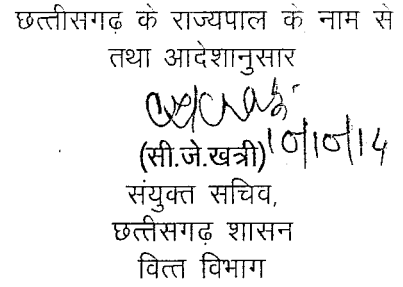 छत्तीसगढ़ के राज्यपाल के नाम से
तथा आदेशानुसार
(सी.जे.खत्री) 10/10/14
संयुक्त सचिव,
छत्तीसगढ़ शासन
वित्त विभाग